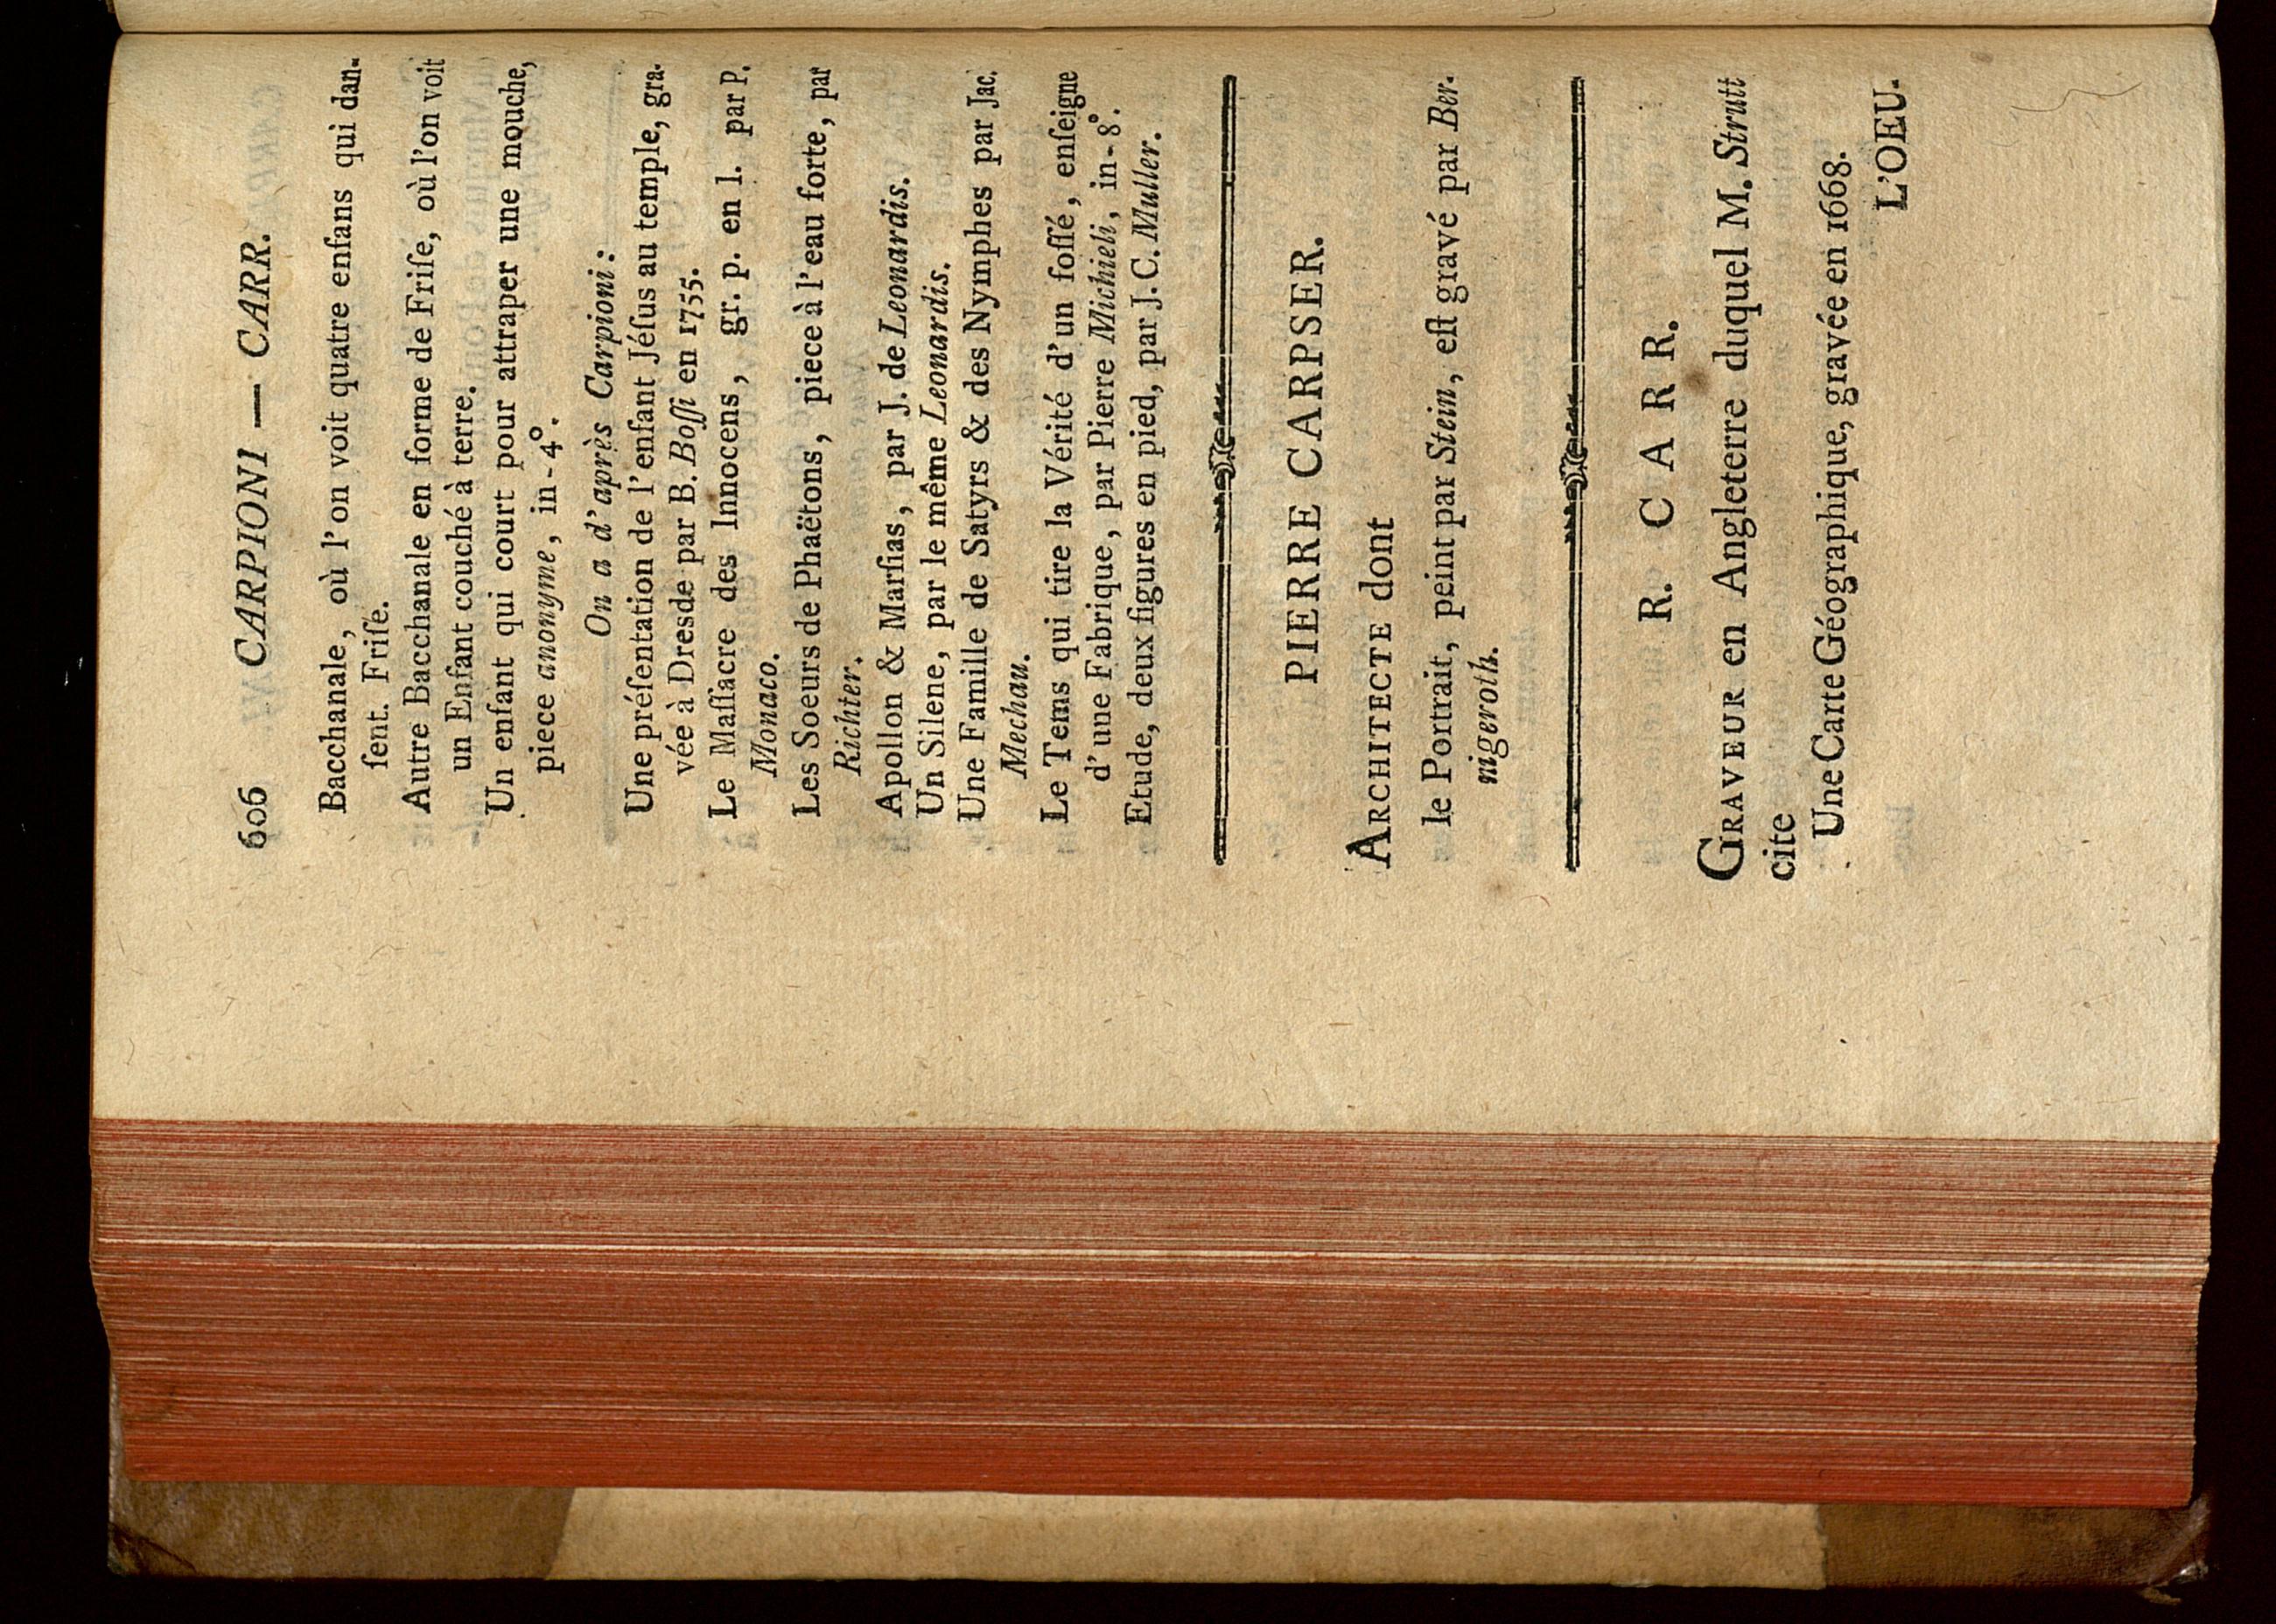 606 CARPIONI — CARR.
Bacchanale, où l'on voit quatre enfans qui dan-
ſent. Friſe.
Autre Bacchanale en forme de Friſe, où l'on voit
un Enfant couché à terre.
Un enfant qui court pour attraper une mouche,
piece anonyme, in-4°.
On a d'après Carpioni:
Une préſentation de l'enfant Jéſus au temple, gra-
vée à Dresde par B. Boſſi en 1755.
Le Maſſacre des Innocens, gr. p. en l. par P.
Monaco.
Les Soeurs de Phaëtons, piece à l'eau forte, par
Richter.
Apollon & Marſias, par J. de Leonardis.
Un Silene, par le même Leonardis.
Une Famille de Satyrs & des Nymphes par Jac.
Mechau.
Le Tems qui tire la Vérité d'un foſſé, enſeigne
d'une Fabrique, par Pierre Michieli, in-8°.
Etude, deux figures en pied, par J. C. Muller.
PIERRE CARPSER.
ARCHITECTE dont
le Portrait, peint par Stein, eſt gravé par Ber-
nigeroth.
R. CARR.
GRAVEUR en Angleterre duquel M. Strutt
cite
Une Carte Géographique, gravée en 1668.
L'OEU-